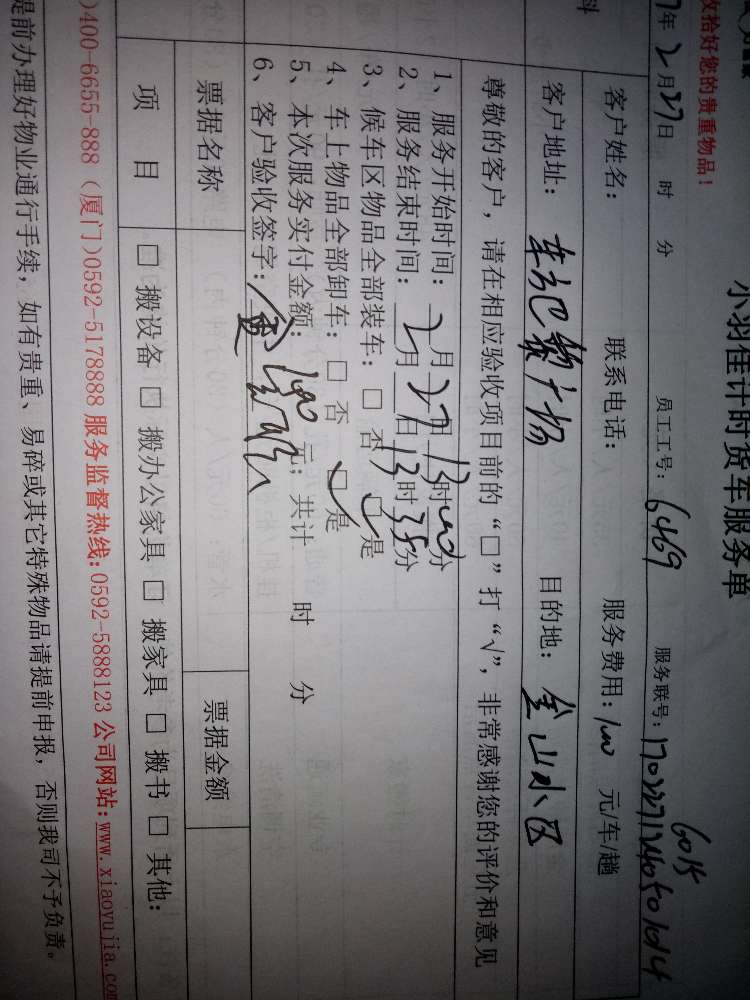 小羽佳计时货车服务单
收拾好您的贵重物品!
年2月27日 时 分 员工工号: 6469 服务联号: 1702271240501014
6015
客户姓名: 联系电话: 服务费用: 100 元/车/趟
客户地址: 车 黎广场 目的地: 金山小区
尊敬的客户,请在相应验收项目前的“□”打“√”,非常感谢您的评价和意见
1、服务开始时间: 2月27日13时00分
2、服务结束时间: 2月 日13时35分
3、候车区物品全部装车: □ 否 □√是
4、车上物品全部卸车: □ 否 □√是
5、本次服务实付金额: 100 元; 共计 时 分
6、客户验收签字:
票据名称 票据金额
项 目 □ 搬设备 □ 搬办公家具 □ 搬家具 □ 搬书 □ 其他:
)400-6655-888 (厦门)0592-5178888 服务监督热线:0592-5888123 公司网站:www.xiaoyujia.co
提前办理好物业通行手续,如有贵重、易碎或其它特殊物品请提前申报,否则我司不予负责。